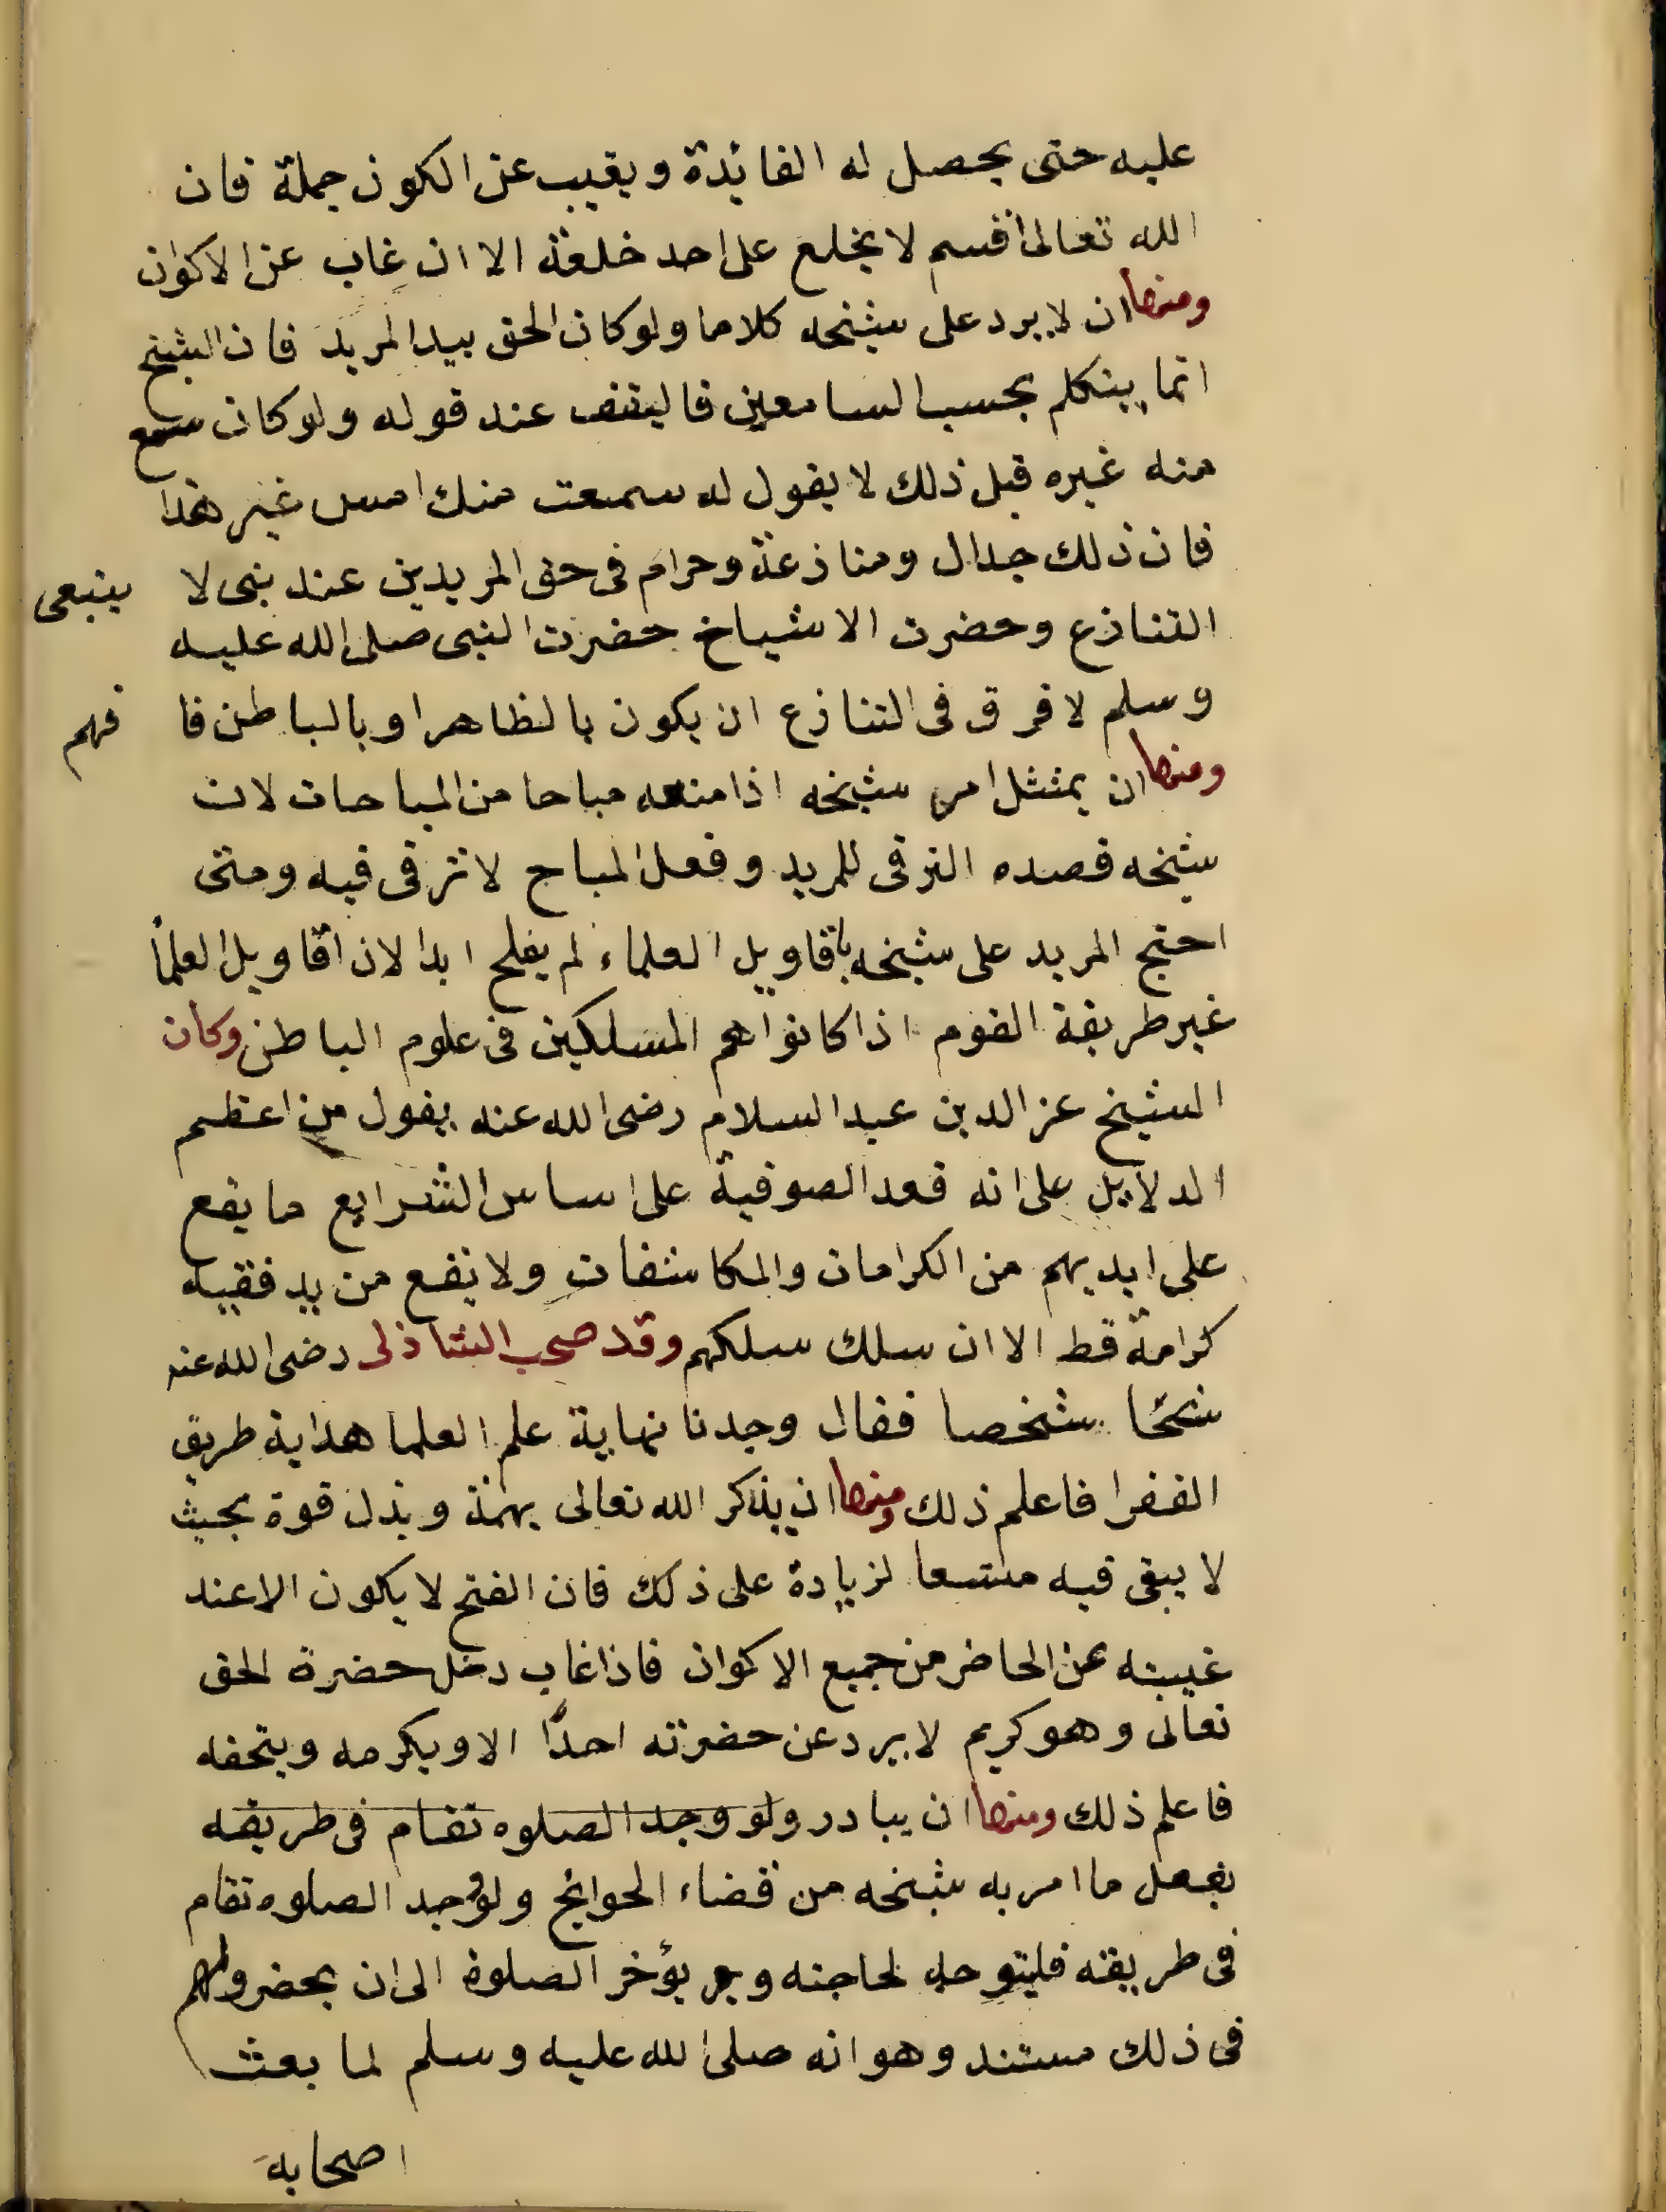 عليه حتى يحصل له الفائدة ويغيب عن الكون جملة فان
الله تعالى اقسم لا يخلع على احد خلعة الا ان غاب عن الاكوان
ومنها ان لا يرد على شيخه كلاما ولو كان الحق بيد المريد فان الشيخ
انما يتكلم بحسب السامعين فاليقف عند قوله ولو كان سمع
منه غيره قبل ذلك لا يقول له سمعت منك امس غير هذا
فان ذلك جدال ومنازعة وحرام فى حق المريدين عند نبى لا ينبغى
التنازع وحضرت الاشياخ حضرت النبى صلى الله عليه
وسلم لا فرق فى التنازع ان يكون بالظاهر او بالباطن فا فهم
ومنها ان يمتثل امر شيخه اذا منعه مباحا من المباحات لان
شيخه قصده الترقى للمريد وفعل المباح لا ترقى فيه ومتى
احتج المريد على شيخه باقاويل العلماء لم يفلح ابدا لان اقاويل العلمأ
غير طريقة القوم اذا كانوا هم المسلكين فى علوم الباطن وكان
الشيخ عز الدين عبد السلام رضى الله عنه يقول من اعظم
الدلايل على انه قعد الصوفية على اساس الشرايع ما يقع
على ايديهم من الكرامات والمكاشفات ولا يقع من يد فقيه
كرامة قط الا ان سلك سلكهم وقد صحب الشاذلى رضى الله عنه
شيخا شخصا فقال وجدنا نهاية علم العلما هداية طريق
الفقرا فاعلم ذلك ومنها ان يذكر الله تعالى بهمة وبذل قوة بحيث
لا يبقى فيه متسعا لزيادة على ذلك فان الفتح لا يكون الا عند
غيبته عن الحاضر من جميع الاكوان فاذا غاب دخل حضرة الحق
تعالى وهو كريم لا يرد عن حضرته احدًا الا ويكرمه ويتحفه
فاعلم ذلك ومنها ان يبادر ولو وجد الصلوه تقام فى طريقه
بفعل ما امر به شيخه من قضاء الحوائج ولو وجد الصلوه تقام
فى طريقه فليتوجه لحاجته و يؤخر الصلوة الى ان يحضر ولهم
فى ذلك مستند وهو انه صلى الله عليه وسلم لما بعث
اصحابه